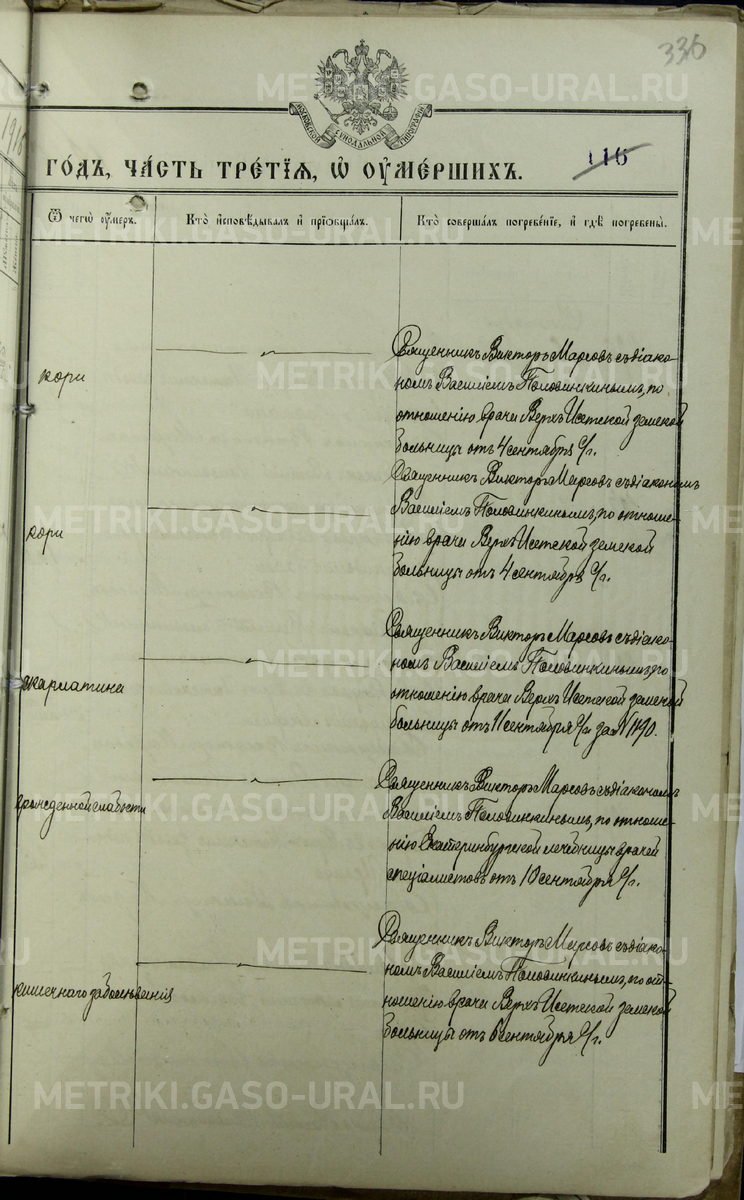 336
МОСКОВСКОЙ СѴНОДАЛЬНОЙ ТИПОГРАФІИ
1916
ГО́ДЪ, ЧА́СТЬ ТРЕ́ТІѦ, Ѡ҆ ОУ҆МЕ́РШИХЪ.
116
Ѿ чегѡ̀ оу҆́меръ.
Кто̀ и҆сповѣ́дывалъ и҆ прїѡбща́лъ.
Кто̀ соверша́лъ погребе́нїе, и҆ гдѣ̀ погребены̀.
кори
Священникъ Викторъ Марсовъ съ діако-
номъ Василіемъ Половинкинымъ, по
отношенію врача Верхъ Исетской земской
больницы отъ 4 сентября с/г.
кори
Священникъ Викторъ Марсовъ съ діакономъ
Василіемъ Половинкинымъ, по отноше-
нію врача Верхъ Исетской земской
больницы отъ 4 сентября с/г.
скарлатина
Священникъ Викторъ Марсовъ съ діако-
номъ Василіемъ Половинкинымъ, по
отношенію врача Верхъ Исетской земской
больницы отъ 11 сентября с/г за №
врожденной слабости
Священникъ Викторъ Марсовъ съ діакономъ
Василіемъ Половинкинымъ, по отноше-
нію Екатеринбургской лечебницы врачей
спеціалистовъ отъ 10 сентября с/г.
кишечнаго заболѣванія
Священникъ Викторъ Марсовъ съ діако-
номъ Василіемъ Половинкинымъ, по от-
ношенію врача Верхъ Исетской земской
больницы отъ 6 сентября с/г.
METRIKI.GASO-URAL.RU